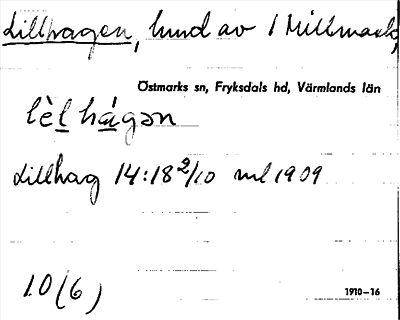 Lillhagen, hmd av 1 Millmark,
Östmarks sn, Fryksdals hd, Värmlands län
lèl hágən
Lillhag 14:18 2/10 ml 1909
10(6)
1910–16